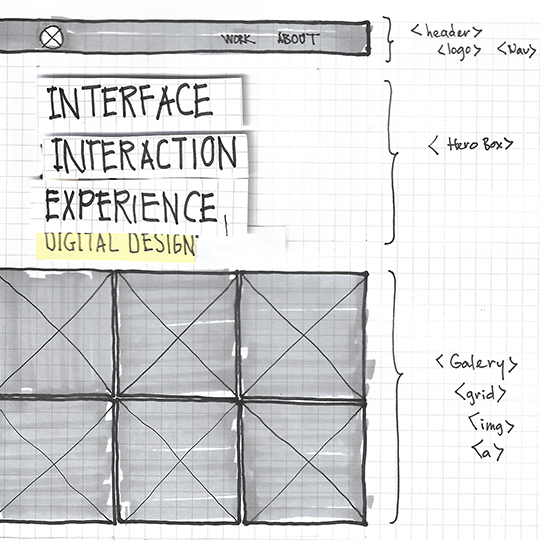 WORK ABOUT
<header>
<logo> <Nav>
INTERFACE
INTERACTION
EXPERIENCE,
DIGITAL DESIGN
<Hero Box>
<Galery>
<grid>
<img>
<a>